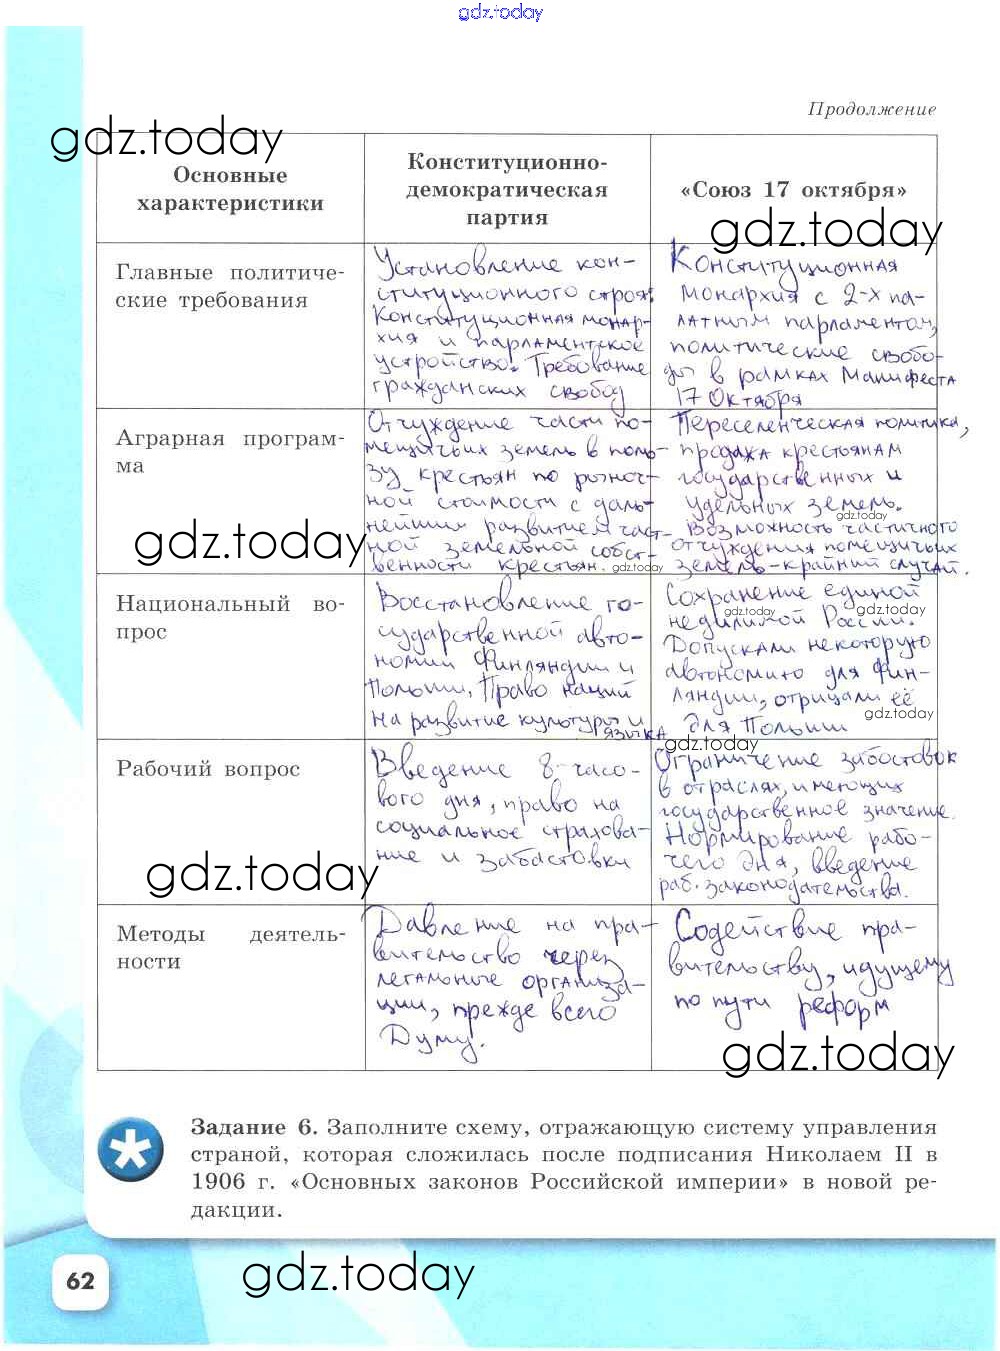 gdz.today
Продолжение
gdz.today
Основные
характеристики
Конституционно-
демократическая
партия
«Союз 17 октября»
gdz.today
Главные политиче-
ские требования
Установление кон-
ституционного строя.
Конституционная монар-
хия и парламентское
устройство. Требование
гражданских свобод
Конституционная
монархия с 2-х па-
латным парламентом,
политические свобо-
ды в рамках Манифеста
17 Октября
Аграрная програм-
ма
Отчуждение части по-
мещичьих земель в поль-
зу крестьян по рыноч-
ной стоимости с даль-
нейшим развитием част-
ной земельной собст-
венности крестьян.
Переселенческая политика,
продажа крестьянам
государственных и
удельных земель.
Возможность частичного
отчуждения помещичьих
земель-крайний случай.
gdz.today
gdz.today
gdz.today
Национальный во-
прос
Восстановление го-
сударственной авто-
номии Финляндии и
Польши, Право наций
на развитие культуры и
языка
Сохранение единой
неделимой России.
Допускали некоторую
автономию для Фин-
ляндии, отрицали её
для Польши
gdz.today
gdz.today
gdz.today
gdz.today
Рабочий вопрос
Введение 8-часо-
вого дня, право на
социальное страхова-
ние и забастовки
Ограничение забастовок
в отраслях, имеющих
государственное значение.
Нормирование рабо-
чего дня, введение
раб. законодательства.
gdz.today
Методы деятель-
ности
Давление на пра-
вительство через
легальные организа-
ции, прежде всего
Думу.
Содействие пра-
вительству, идущему
по пути реформ
gdz.today
Задание 6. Заполните схему, отражающую систему управления
страной, которая сложилась после подписания Николаем II в
1906 г. «Основных законов Российской империи» в новой ре-
дакции.
62
gdz.today